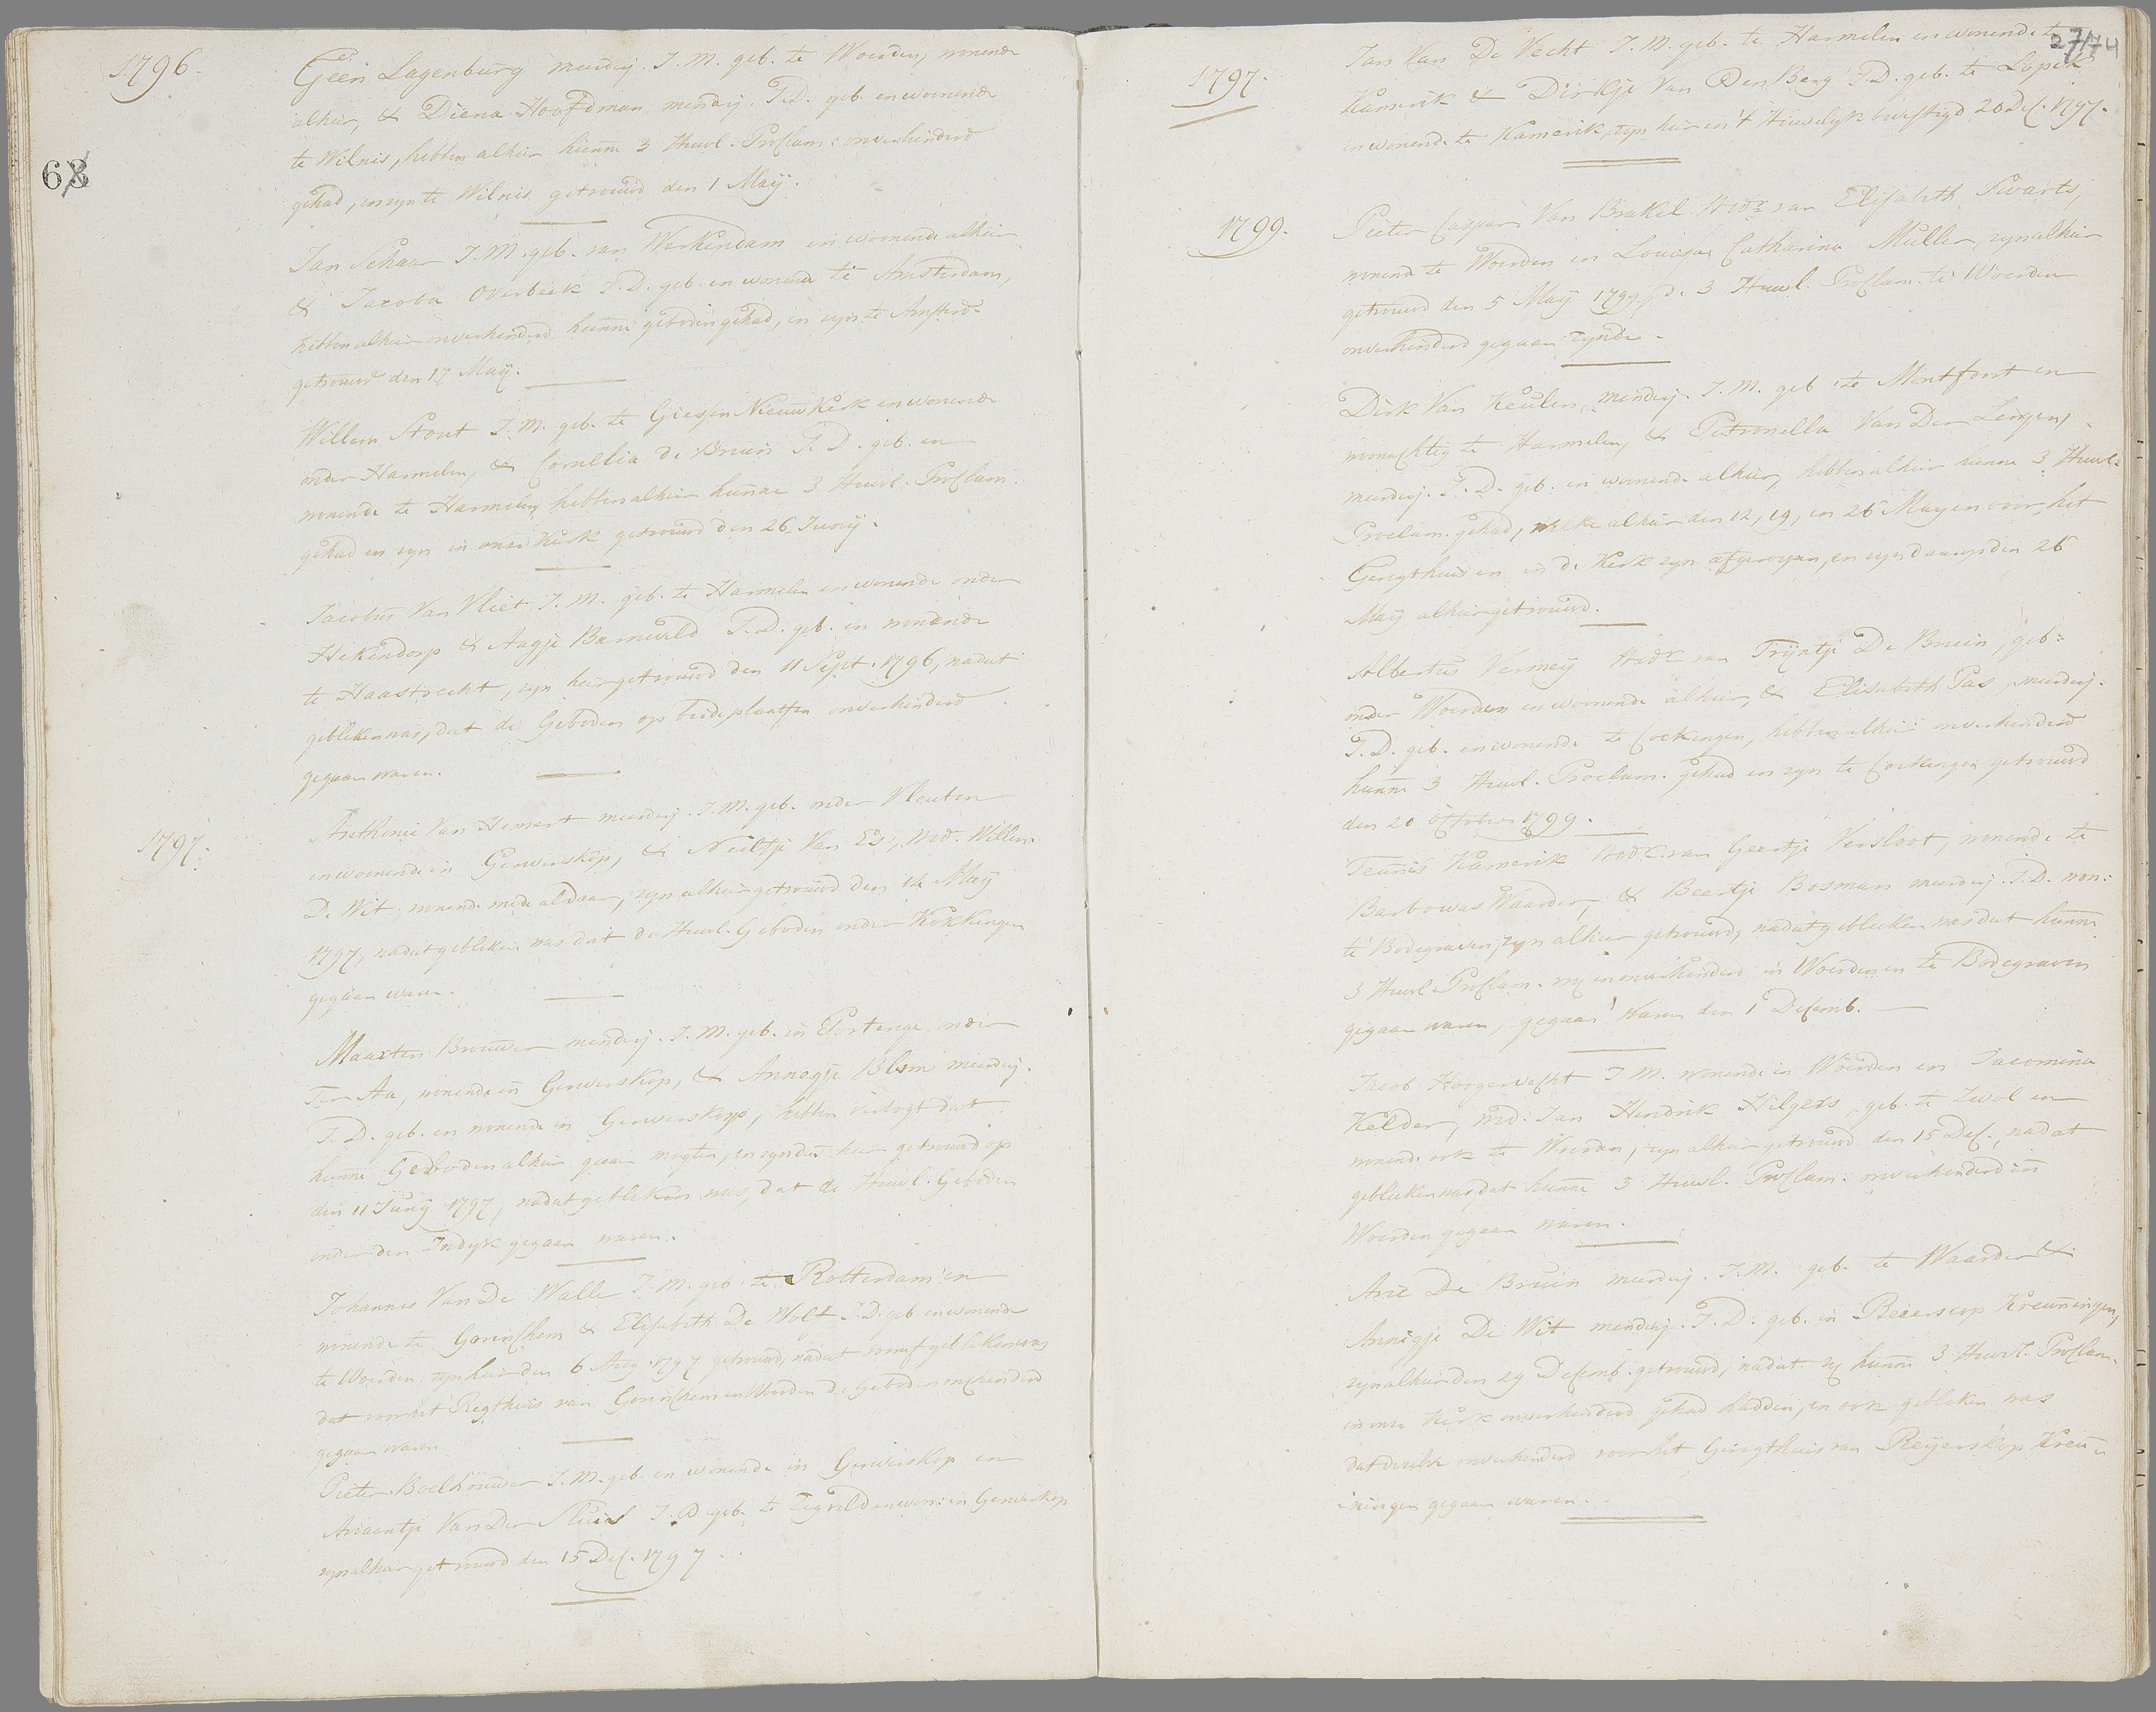 1796.
68
Geen Lagenburg meerderj. J.M. geb. te Woerden, wonende
alhier, & Diena Hoofdman menderj. J.D. geb. en woenende
te Wilnis, hebben alhier hunne 3 Huwl. Proclam: onverhinderd
gehad, en zyn te Wilnis getrouwd den 1 Maij.
Jan Schaar J.M. geb. van Werkendam en woenende alhier
& Jacoba Overbeek J.D. geb. en wonende te Amsterdam,
hebben alhier onverhinderd hunne geboden gehad, en zyn te Amsterd.
getrouwd den 17 Maij.
Willem Stout J.M. geb. te Giessen Nieuwkerk en wonende
onder Harmelen, & Cornelia de Bruin J.D. geb. en
wonende te Harmelen, hebben alhier hunne 3 Huwl. Proclam.
gehad en zyn in onze Kerk getrouwd den 26 Junij.
Jacobus Van Vliet J.M. geb. te Harmelen en wonende onder
Hekendorp & Aagje Barneveld J.D. geb. en wonende
te Haastrecht, zyn hier getrouwd den 11 Sept. 1796, nadat
gebleken was, dat de Geboden op beide plaatsen onverhinderd
gegaan waren.
1797.
Anthonie Van Hemert meerderj. J.M. geb. onder Vleuten
en woenende in Gerverskop, & Neeltje Van Es, Wed. Willem
De Wit, wonende mede aldaar, zyn alhier getrouwd den 14 Maij
1797, nadat gebleken was dat de Huwl. Geboden onder Kokkengen
gegaan waren.
Maarten Brouwer menderj. J.M. geb. in Portengen onder
Ter Aa, wonende in Gerverskop, & Annegje Blom meerderj.
J.D. geb. en wonende in Gerverskop, hebben verzogt dat
hunne Geboden alhier gaan mogten, en zyn dus hier getrouwd op
den 11 Junij 1797, nadat gebleken was, dat de Huwl. Geboden
onder den Indyk gegaan waren.
Johannes Van De Walle J.M. geb. te Rotterdam en
wonende te Gorinchem & Elisabeth De Wolf J.D. geb. en wonende
te Woerden, zyn hier den 6 Aug. 1797 getrouwd, nadat vooraf gebleken was
dat voor het Regthuis van Gorinchem en Woerden de geboden onverhinderd
gegaan waren
Pieter Boelhouwer J.M. geb. en wonende in Gerverskop en
Ariaantje Van Der Sluis J.D. geb. te Zegveld en won: in Gerverskop
zyn alhier getrouwd den 15 Dec. 1797.
27/74
1797.
Jan Van De Vecht J.M. geb. te Harmelen en wonende te
Kamerik & Dirkje Van Den Berg J.D. geb. te Lopik
en wonende te Kamerik, zyn hier in 't Huwelyk bevestigd 20 Dec. 1797.
1799.
Pieter Caspar Van Brakel Wedr. van Elisabeth Swarts,
wonend te Woerden en Louisa Catharina Muller, zyn alhier
getrouwd den 5 Maij 1799, de 3 Huwl. Proclam. te Woerden
onverhinderd gegaan zynde.
Dirk Van Keulen, menderj. J.M. geb. te Montfoort en
woonachtig te Harmelen, & Petronella Van Der Lingen,
meerderj. J.D. geb. en woenende alhier, hebben alhier hunne 3 Huwl.
Proclam. gehad, welke alhier den 12, 19, en 26 May en voor het
Geregthuis en in de Kerk zyn afgeroepen, en zyn daarop den 26
Maij alhier getrouwd.
Albertus Vermeij Wedr. van Trijntje De Bruin, geb:
onder Woerden en woenende alhier, & Elisabeth Pas, meerderj.
J.D. geb. en wonende te Cockengen, hebben alhier onverhinderd
hunne 3 Huwl. Proclam. gehad en zyn te Cockengen getrouwd
den 20 October 1799.
Teunis Kamerik Wedr. van Geertje Versloot, wonende te
Barbowas Waarder, & Beertje Bosman meerderj. J.D. won:
te Bodegraven, zyn alhier getrouwd, nadat gebleeken was dat hunne
3 Huwl. Proclam. vrij en onverhinderd in Woerden en te Bodegraven
gegaan waren, gegaan waren den 1 Decemb.
Jacob Hoogervecht J.M. wonende in Woerden en Jacomina
Kelder, wed: Jan Hendrik Hilgers, geb. te Zwol en
wonende ook te Woerden, zyn alhier getrouwd den 15 Dec., nadat
gebleeken was, dat hunne 3 Huwl. Proclam. onverhinderd in
Woerden gegaan waren.
Arie De Bruin meerderj. J.M. geb. te Waarder &
Annigje De Wit menderj. J.D. geb. in Reierscop Kreuningen,
zyn alhier den 29 Decemb. getrouwd, nadat zij hunne 3 Huwl. Proclam.
in onze Kerk onverhinderd gehad hadden, en ook gebleken was
dat dezelve onverhinderd voor het Geregthuis van Reijerskop Kreu-
ningen gegaan waren.